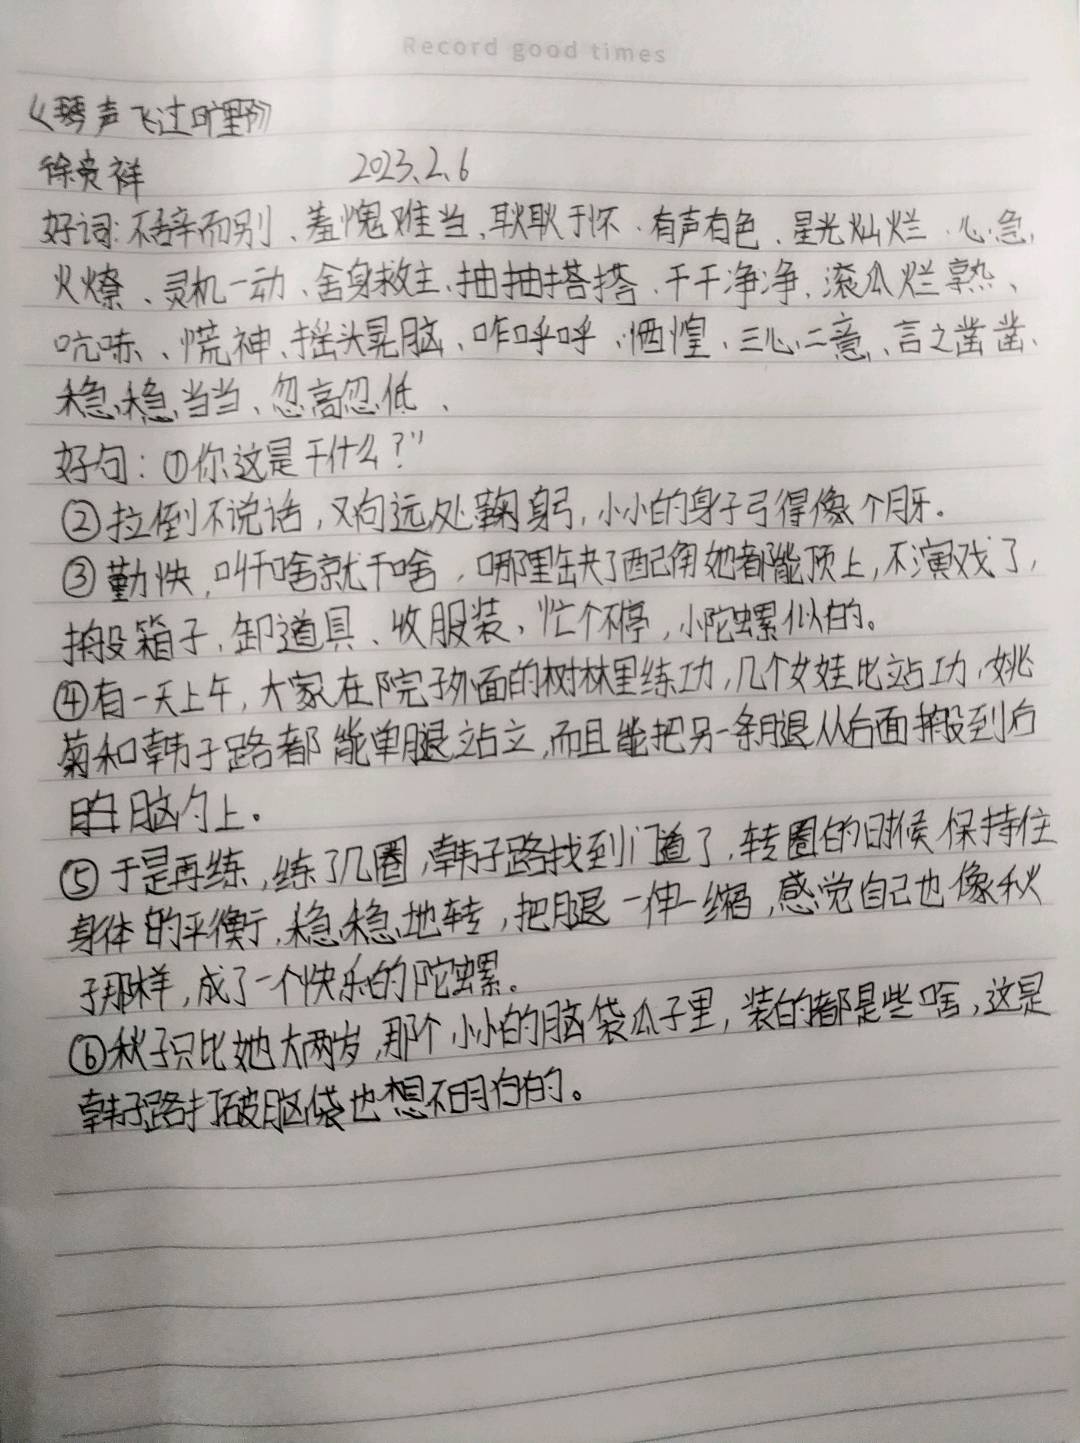 Record good times
《琴声飞过旷野》
徐贵祥 2023.2.6
好词:不辞而别、羞愧难当、耿耿于怀、有声有色、星光灿烂、心急
火燎、灵机一动、舍身救主、抽抽搭搭、干干净净、滚瓜烂熟、
吭哧、慌神、摇头晃脑、咋呼呼、恓惶、三心二意、言之凿凿、
稳稳当当、忽高忽低、
好句:①你这是干什么?”
②拉倒不说话,又向远处鞠躬,小小的身子弓得像个月牙。
③勤快,叫干啥就干啥,哪里缺了配角她都能顶上,不演戏了,
搬箱子、卸道具、收服装、忙个不停,小陀螺似的。
④有一天上午,大家在院子外面的树林里练功,几个女娃比站功,姚
菊和韩子路都能单腿站立,而且能把另一条腿从后面搬到后
脑勺上。
⑤于是再练,练了几圈,韩子路找到门道了,转圈的时候保持住
身体的平衡,稳稳地转,把腿一伸一缩,感觉自己也像秋
子那样,成了一个快乐的陀螺。
⑥秋子只比她大两岁,那个小小的脑袋瓜子里,装的都是些啥,这是
韩子路打破脑袋也想不明白的。